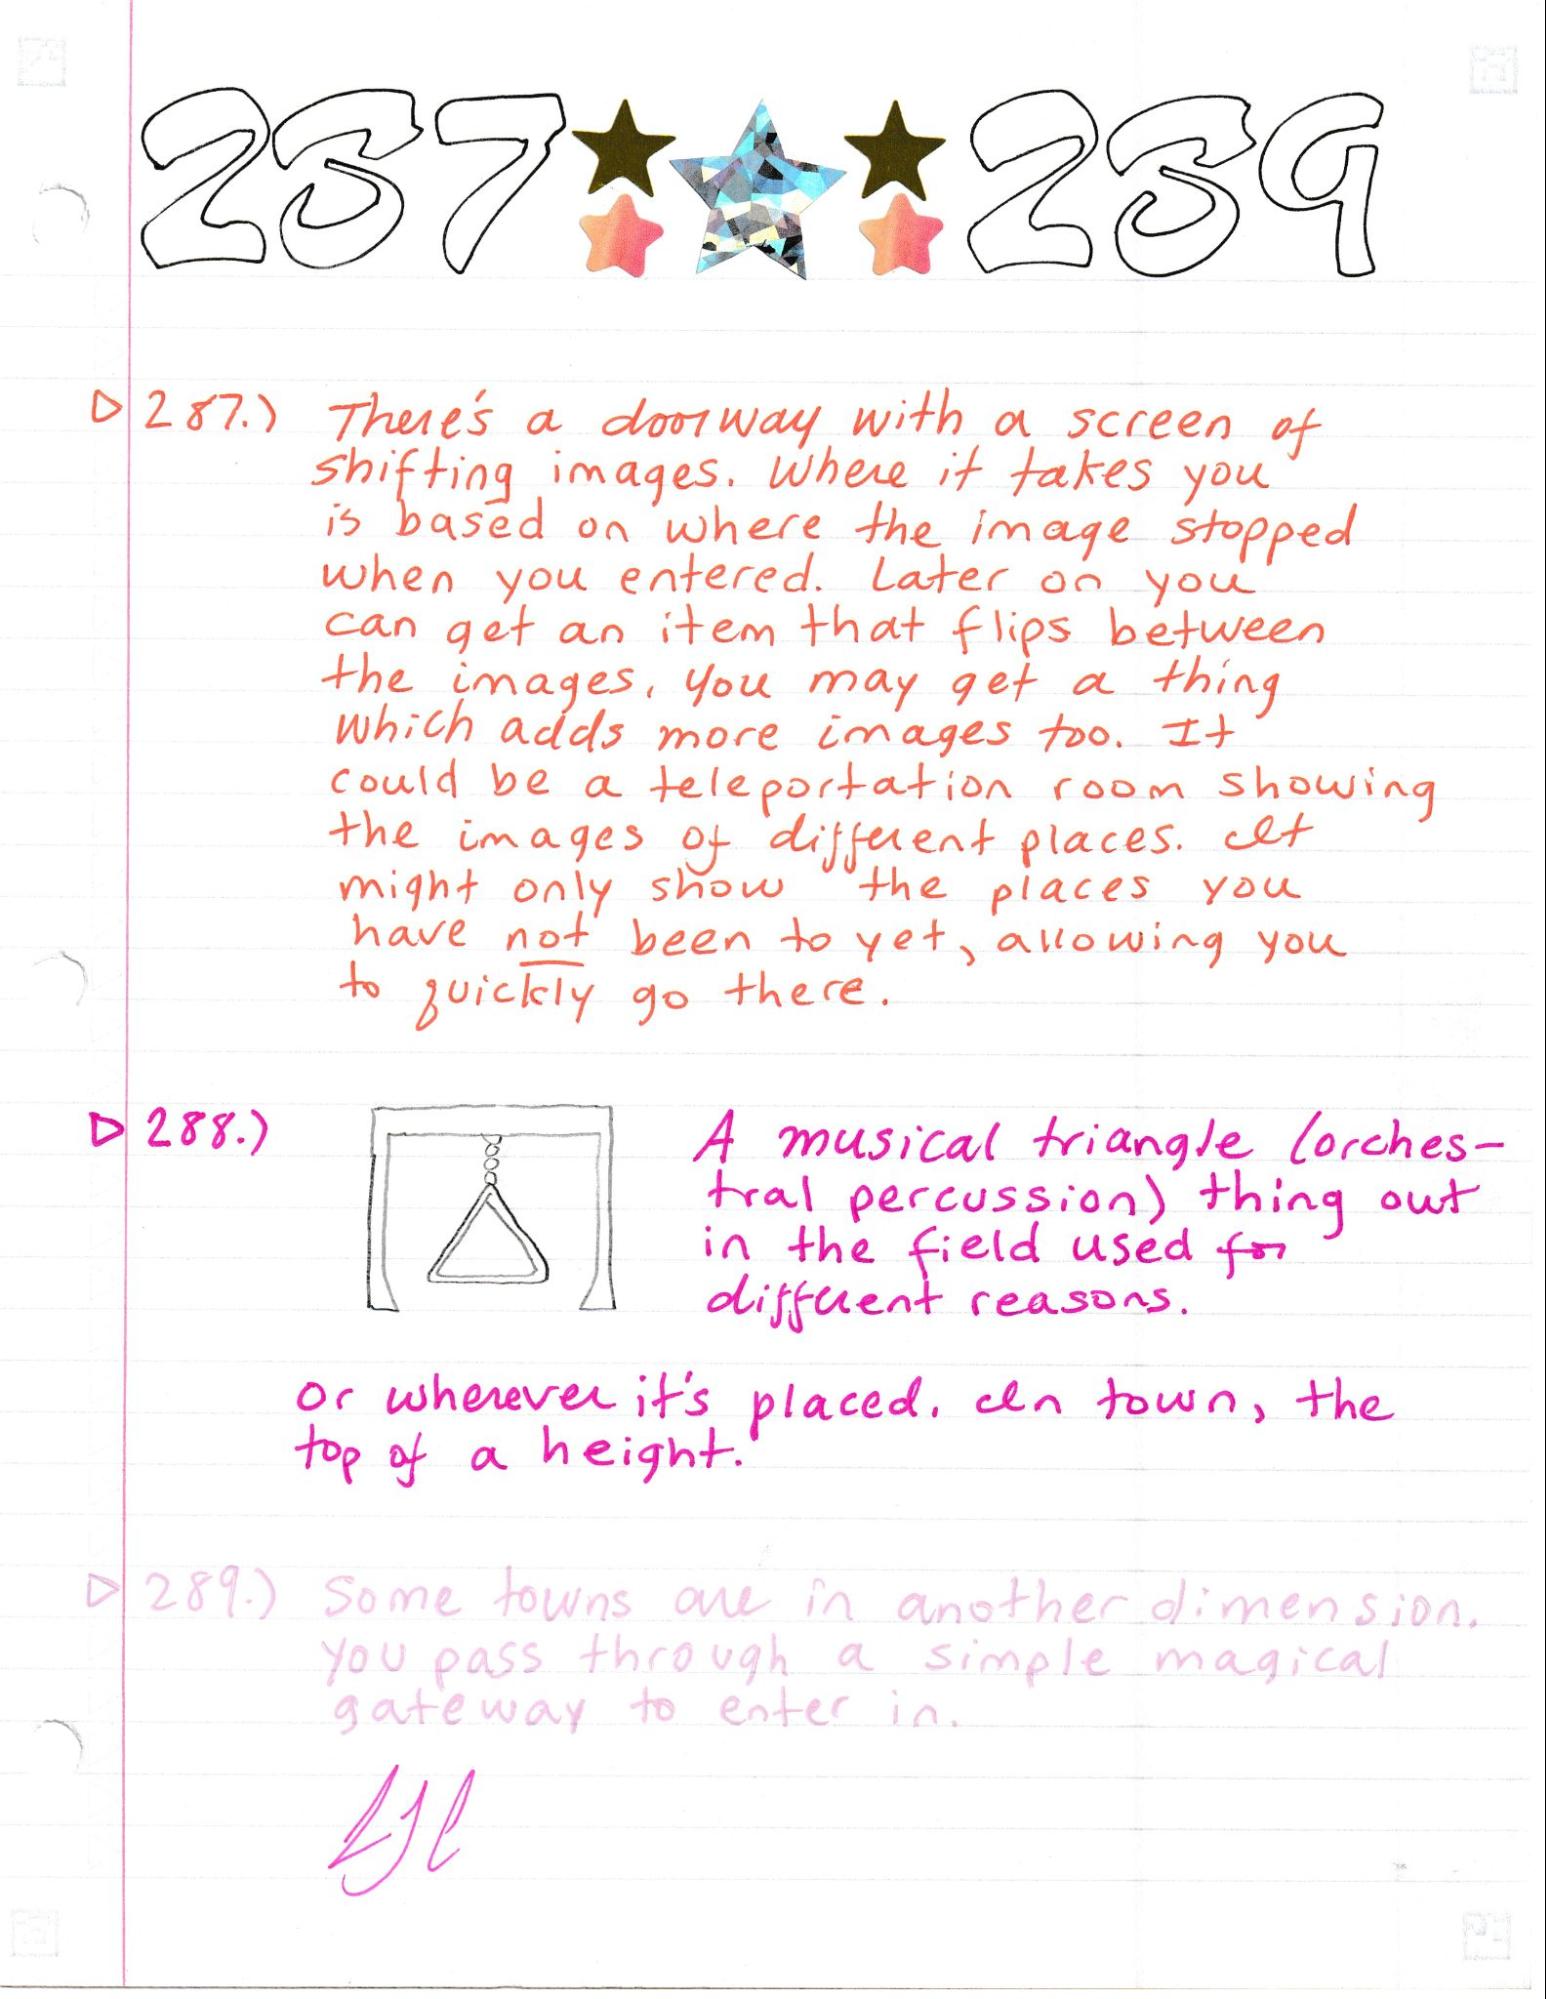 287 289
287.) There's a doorway with a screen of
shifting images. Where it takes you
is based on where the image stopped
when you entered. Later on you
can get an item that flips between
the images. You may get a thing
which adds more images too. It
could be a teleportation room showing
the images of different places. It
might only show the places you
have not been to yet, allowing you
to quickly go there.
288.) A musical triangle (orches-
tral percussion) thing out
in the field used for
different reasons.
Or wherever it's placed. In town, the
top of a height.
289.) Some towns are in another dimension.
You pass through a simple magical
gateway to enter in.